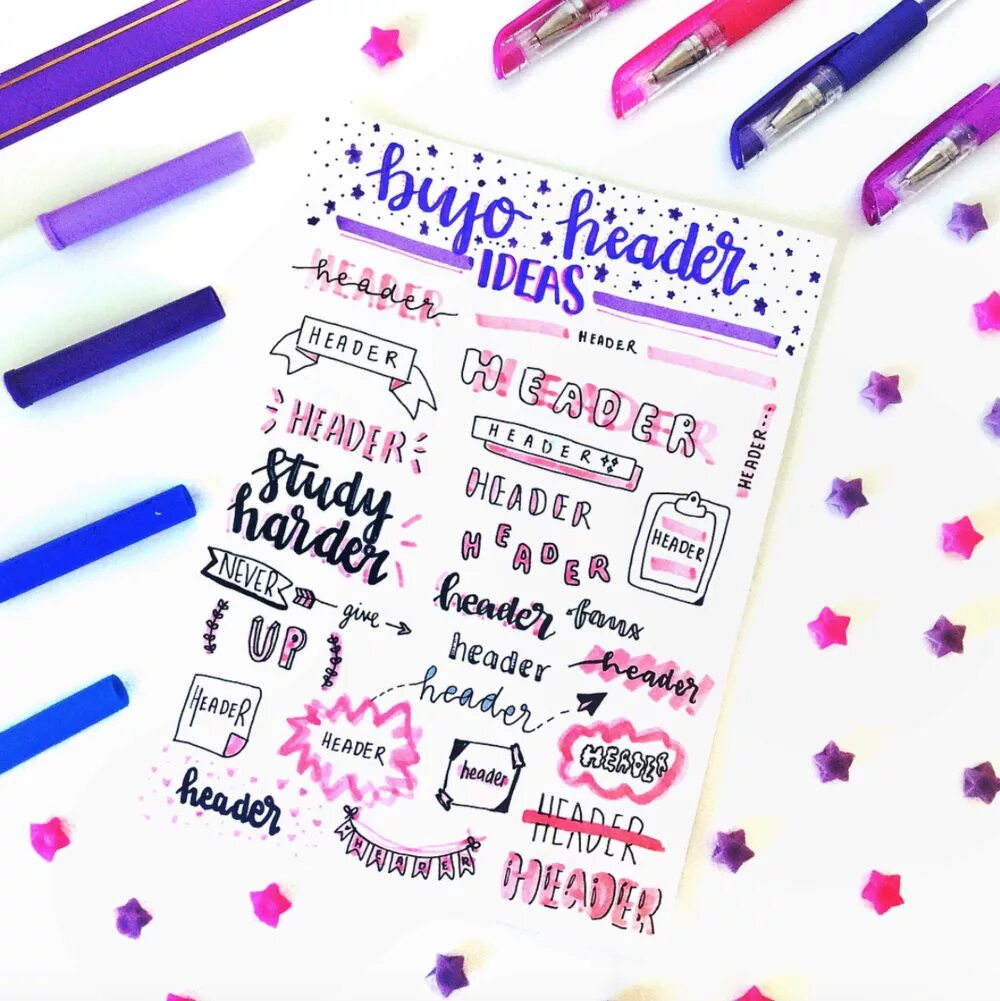 bujo header
IDEAS
HEADER
header
HEADER
HEADER
study
harder
NEVER
give
UP
HEADER
HEADER
header
HEADER
HEADER
HEADER
HEADER...
HEADER
HEADER
HEADER
HEADER
header faux
header
header
header
header
HEADER
HEADER
HEADER